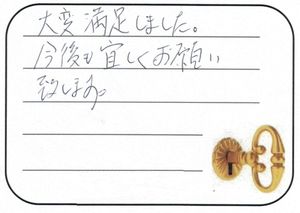 大変満足しました。
今後も宜しくお願い
致します。